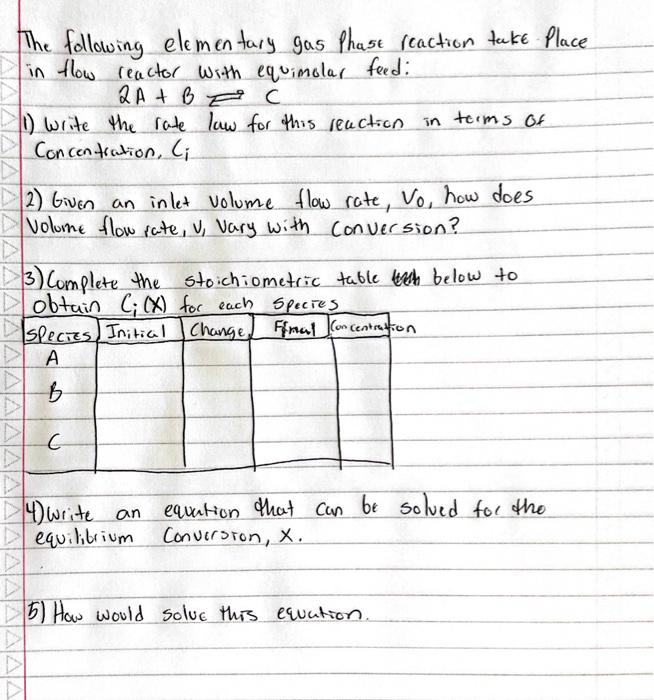 The following elementary gas Phase reaction take Place
in flow reactor with equimolar feed:
2A + B ⇌ C
1) Write the rate law for this reaction in terms of
Concentration, Ci
2) Given an inlet volume flow rate, Vo, how does
Volume flow rate, V, Vary with conversion?
3) Complete the stoichiometric table below to
obtain Ci(X) for each species
Species Initial Change Final Concentration
A
B
C
4) Write an equation that can be solved for the
equilibrium Conversion, X.
5) How would solve this equation.